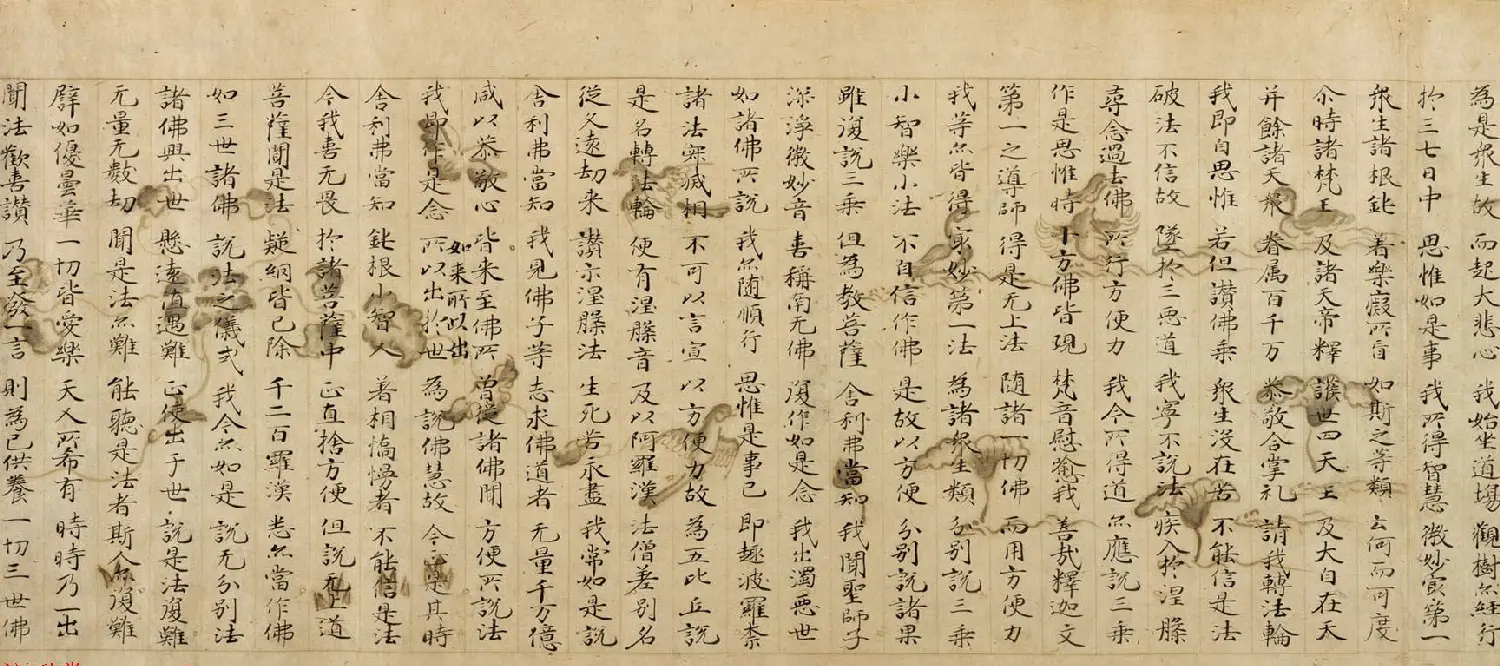 為是衆生故 而起大悲心 我始坐道場 觀樹亦経行
扵三七日中 思惟如是事 我所得智慧 微妙㝡第一
衆生諸根鈍 著樂癡所盲 如斯之等類 云何而可度
尒時諸梵王 及諸天帝釋 護世四天王 及大自在天
并餘諸天衆 眷属百千万 恭敬合掌礼 請我轉法輪
我即自思惟 若但讃佛乗 衆生没在苦 不能信是法
破法不信故 墜扵三惡道 我寧不說法 疾入扵涅槃
尋念過去佛 所行方便力 我今所得道 亦應說三乗
作是思惟時 十方佛皆現 梵音慰喻我 善哉釋迦文
第一之導師 得是无上法 随諸一切佛 而用方便力
我等亦皆得 㝡妙第一法 為諸衆生類 分別說三乗
小智樂小法 不自信作佛 是故以方便 分別說諸果
雖復說三乗 但為教菩薩 舍利弗當知 我聞聖師子
深淨微妙音 喜稱南无佛 復作如是念 我出濁惡世
如諸佛所說 我亦随順行 思惟是事已 即趣波羅柰
諸法寂滅相 不可以言宣 以方便力故 為五比丘說
是名轉法輪 便有涅槃音 及以阿羅漢 法僧差別名
従久遠劫来 讃示涅槃法 生死苦永盡 我常如是說
舍利弗當知 我見佛子等 志求佛道者 无量千万億
咸以恭敬心 皆来至佛所 曾従諸佛聞 方便所說法
我即作是念 所以出扵世 為說佛慧故 今正是其時
如来所以出
舍利弗當知 鈍根小智人 著相憍慢者 不能信是法
今我喜无畏 扵諸菩薩中 正直捨方便 但說无上道
菩薩聞是法 疑網皆已除 千二百羅漢 悉亦當作佛
如三世諸佛 說法之儀式 我今亦如是 說无分別法
諸佛興出世 懸遠值遇難 正使出于世 說是法復難
无量无數劫 聞是法亦難 能聽是法者 斯人亦復難
譬如優曇華 一切皆愛樂 天人所希有 時時乃一出
聞法歡喜讃 乃至發一言 則為已供養 一切三世佛